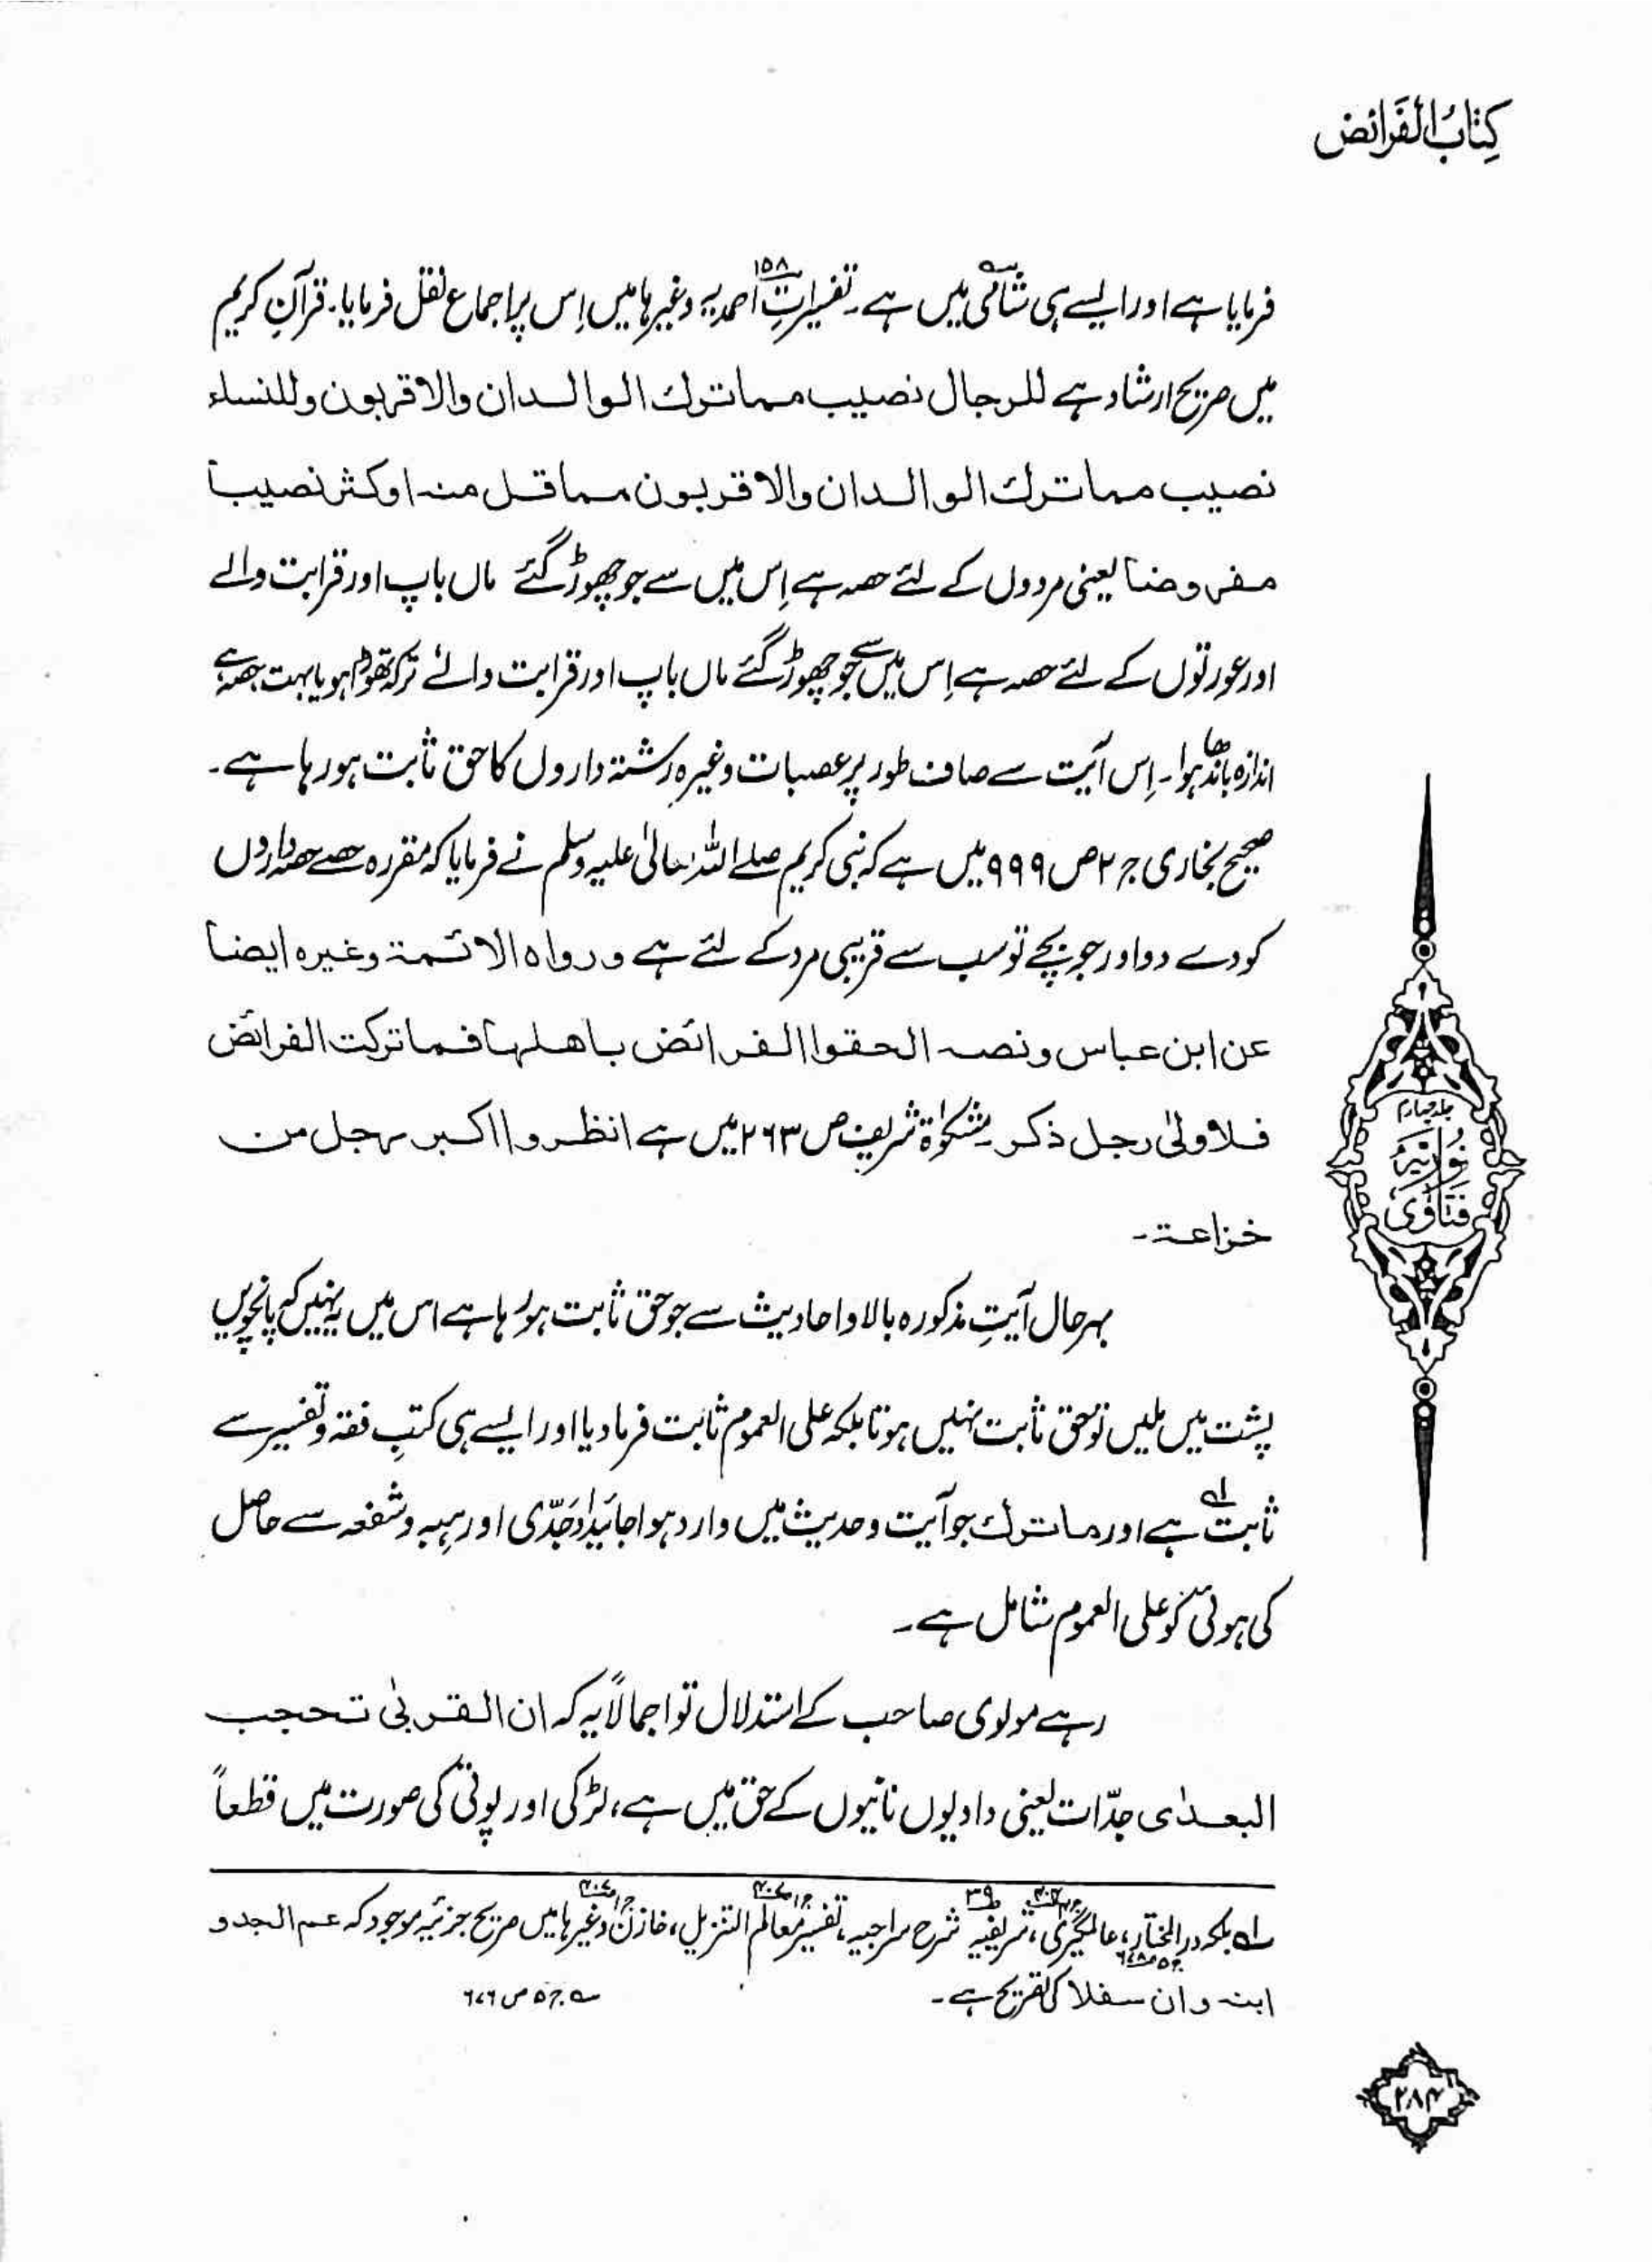 کِتَابُ الْفَرَائض
فرمایا ہے اور ایسے ہی شامی میں ہے۔ تفسیراتِ احمدیہ ۱۵۸ وغیرہا میں اِس پر اجماع نقل فرمایا۔ قرآنِ کریم
میں صریح ارشاد ہے للرجال نصیب مما ترك الوالدان والاقربون وللنساء
نصیب مما ترك الوالدان والاقربون مما قل منه او کثر نصیبا
مفروضا یعنی مردوں کے لئے حصہ ہے اِس میں سے جو چھوڑ گئے ماں باپ اور قرابت والے
اور عورتوں کے لئے حصہ ہے اِس میں سے جو چھوڑ گئے ماں باپ اور قرابت والے ترکہ تھوڑا ہو یا بہت حصہ ہے
اندازہ باندھا ہوا۔ اِس آیت سے صاف طور پر عصبات وغیرہ رشتہ داروں کا حق ثابت ہو رہا ہے۔
صحیح بخاری ج ۲ ص ۹۹۹ میں ہے کہ نبی کریم صلے اللہ تعالیٰ علیہ وسلم نے فرمایا کہ مقررہ حصے حصہ داروں
کو دے دو اور جو بچے تو سب سے قریبی مرد کے لئے ہے ورواہ الائمة وغیرہ ایضا
عن ابن عباس ونصه الحقوا الفرائض باهلها فما ترکت الفرائض
فلاولیٰ رجل ذکر۔ مشکوٰۃ شریف ص ۲۶۳ میں ہے انظروا اکبر رجل من
خزاعة۔
بہرحال آیتِ مذکورہ بالا و احادیث سے جو حق ثابت ہو رہا ہے اس میں یہ نہیں کہ پانچویں
پشت میں ملیں تو حق ثابت نہیں ہوتا بلکہ علی العموم ثابت فرما دیا اور ایسے ہی کتبِ فقہ و تفسیر سے
ثابت ہے ؂۱ اور ما ترك جو آیت و حدیث میں وارد ہوا جائیدادِ جَدّی اور ہبہ و شفعہ سے حاصل
کی ہوئی کو علی العموم شامل ہے۔
رہے مولوی صاحب کے استدلال تو اجمالاً یہ کہ ان القربیٰ تحجب
البعدٰی جدّات یعنی دادیوں نانیوں کے حق میں ہے، لڑکی اور پوتی کی صورت میں قطعاً
؂۱ بلکہ در المختار، عالمگیری، شریفیہ ۳۹ شرح سراجیہ، تفسیر معالم التنزیل، خازن وغیرہا میں صریح جزئیہ موجود کہ عم الجد و
ابنه وان سفلا کی تصریح ہے۔ ؂ ج ۵ ص ۶۷۶
جلد چہارم
نُورِیَّہ
فَتَاوٰی
۲۸۴